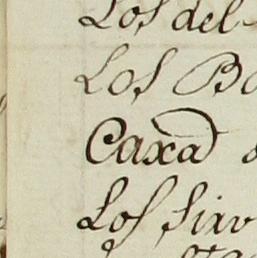 Los del
Los Bo
Caxa d
Los sirv